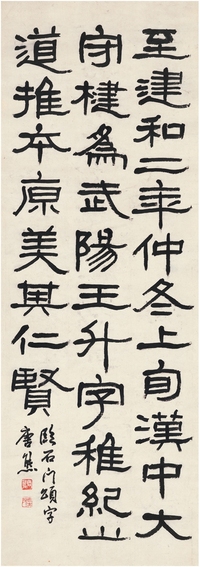 至建和二年仲冬上旬漢中大
守楗為武陽王升字稚紀山
道推夲原美其仁賢
臨石门頌字
唐熊